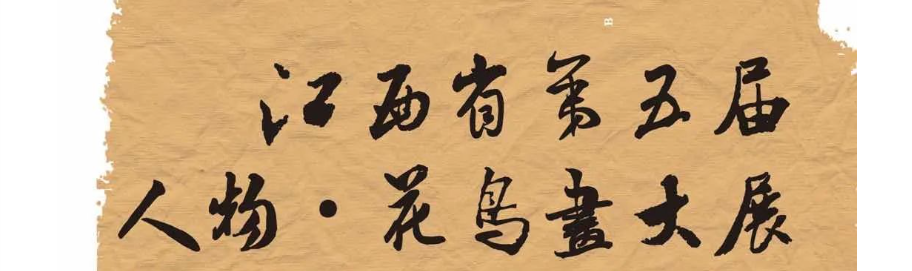 江西省第五届
人物·花鸟畫大展